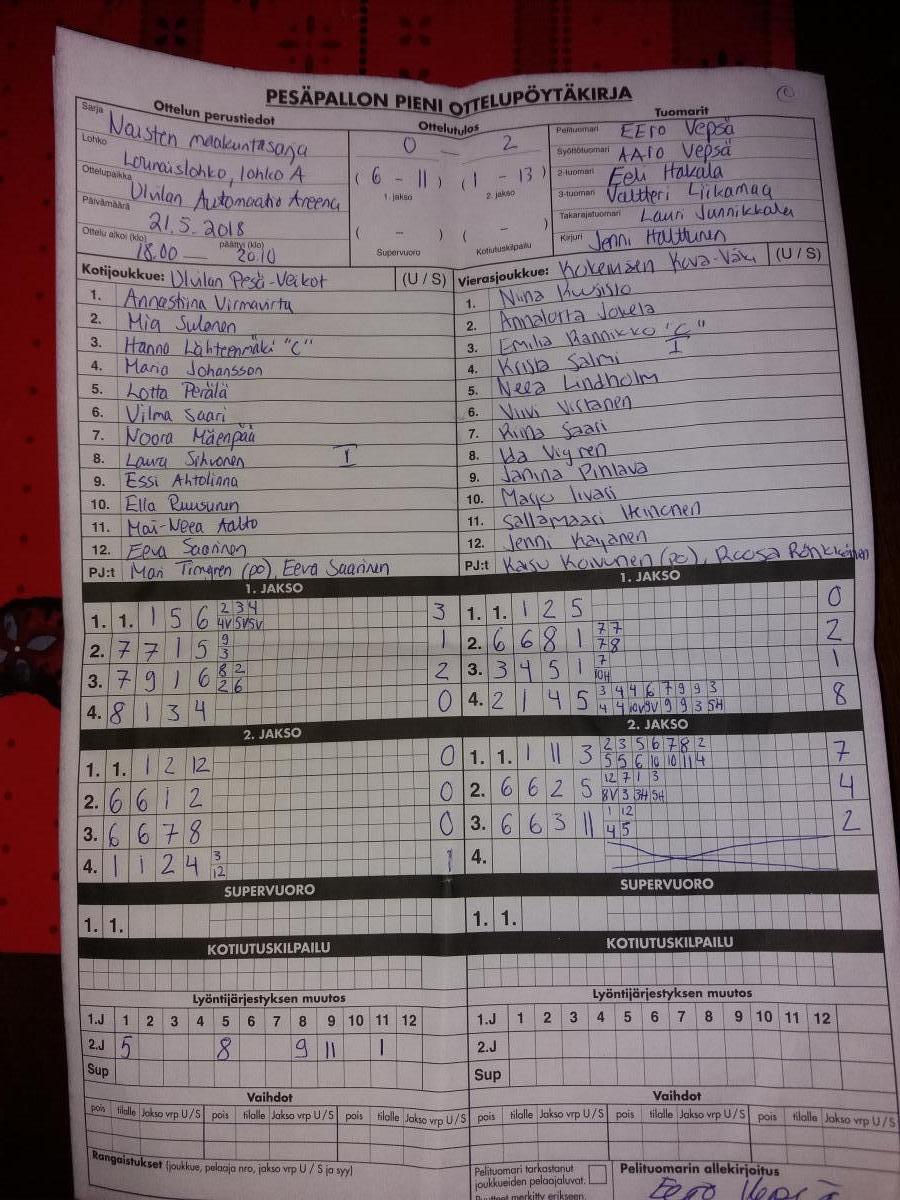 PESÄPALLON PIENI OTTELUPÖYTÄKIRJA
Ottelun perustiedot
Sarja Naisten maakuntasarja
Lohko Lounaislohko, lohko A
Ottelupaikka Ulvilan Automaatio Areena
Päivämäärä 21.5.2018
Ottelu alkoi (klo) 18.00 — päättyi (klo) 20.10
Ottelutulos
0 — 2
(6 - 11) (1 - 13)
1. jakso 2. jakso
( - ) ( - )
Supervuoro Kotiutuskilpailu
Tuomarit
Pelituomari EEro Vepsä
Syöttötuomari AARO Vepsä
2-tuomari Eeli Hakala
3-tuomari Valtteri Liikamaa
Takarajatuomari Lauri Junnikkala
Kirjuri Jenni Halttunen
Kotijoukkue: Ulvilan Pesä-Veikot (U / S)
1. Annastiina Virmavirta
2. Mia Sulonen
3. Hanna Lähteenmäki "C"
4. Maria Johansson
5. Lotta Perälä
6. Vilma Saari
7. Noora Mäenpää
8. Laura Sihvonen I
9. Essi Ahtolinna
10. Ella Ruusunen
11. Mai-Neea Aalto
12. Eeva Saarinen
PJ:t Mari Timgren (po), Eeva Saarinen
Vierasjoukkue: Kokemäen Kova-Väki (U / S)
1. Niina Kuusisto
2. Annalotta Jokela
3. Emilia Rannikko "C"
I
4. Krista Salmi
5. Neea Lindholm
6. Viivi Virtanen
7. Riina Saari
8. Ida Vigren
9. Janina Pinlava
10. Marjo Iivari
11. Sallamaari Heinonen
12. Jenni Karjanen
PJ:t Kaisu Koivunen (po), Roosa Rönkkönen
1. JAKSO
1. 1. 1 5 6 2 3 4 3
4V 5V 5V
2. 7 7 1 5 9 1
3
3. 7 9 1 6 8 2 2
2 6
4. 8 1 3 4 0
2. JAKSO
1. 1. 1 2 12 0
2. 6 6 1 2 0
3. 6 6 7 8 0
4. 1 1 2 4 3 1
12
SUPERVUORO
1. 1.
KOTIUTUSKILPAILU
1. JAKSO
1. 1. 1 2 5 0
2. 6 6 8 1 7 7 2
7 8
3. 3 4 5 1 7 1
10H
4. 2 1 4 5 3 4 4 6 7 9 9 3 8
4 4 10V 9V 9 9 3 5H
2. JAKSO
1. 1. 1 11 3 2 3 5 6 7 8 2 7
5 5 6 10 10 11 4
2. 6 6 2 5 12 7 1 3 4
8V 3 3H 5H
3. 6 6 3 11 1 12 2
4 5
4.
SUPERVUORO
1. 1.
KOTIUTUSKILPAILU
Lyöntijärjestyksen muutos
1.J 1 2 3 4 5 6 7 8 9 10 11 12
2.J 5 8 9 11 1
Sup
Lyöntijärjestyksen muutos
1.J 1 2 3 4 5 6 7 8 9 10 11 12
2.J
Sup
Vaihdot
pois tilalle Jakso vrp U / S pois tilalle Jakso vrp U / S pois tilalle Jakso vrp U / S
Vaihdot
pois tilalle Jakso vrp U / S pois tilalle Jakso vrp U / S pois tilalle Jakso vrp U / S
Rangaistukset (joukkue, pelaaja nro, jakso vrp U / S ja syy)
Pelituomari tarkastanut
joukkueiden pelaajaluvat.
Puutteet merkitty erikseen.
Pelituomarin allekirjoitus
Eero Vepsä